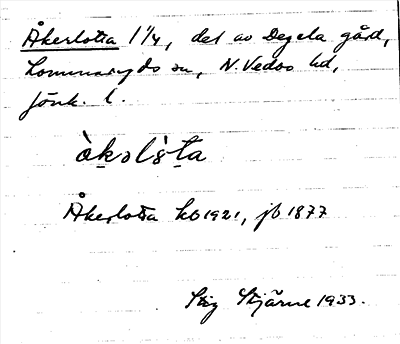 Åkerlotta 1 1/4, del av Degla gård,
Lommaryds sn, N. Vedbo hd,
Jönk. l.
Åkerlotta hb 1921, jb 1877
Stig Stjärne 1933.